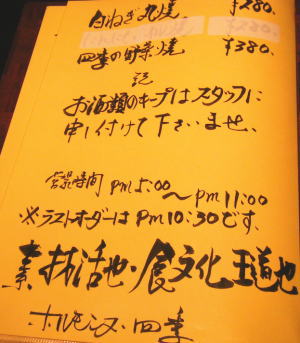 白ねぎ丸焼 ¥280.
¥280.
四季の野菜焼 ¥380.
記
お酒類のキープはスタッフに
申し付けて下さいませ、
営業時間 Pm 5:00
〜Pm 11:00
※ラストオーダーは Pm10:30です.
素材活也・食文化王道也
ホルモンヌ・四季